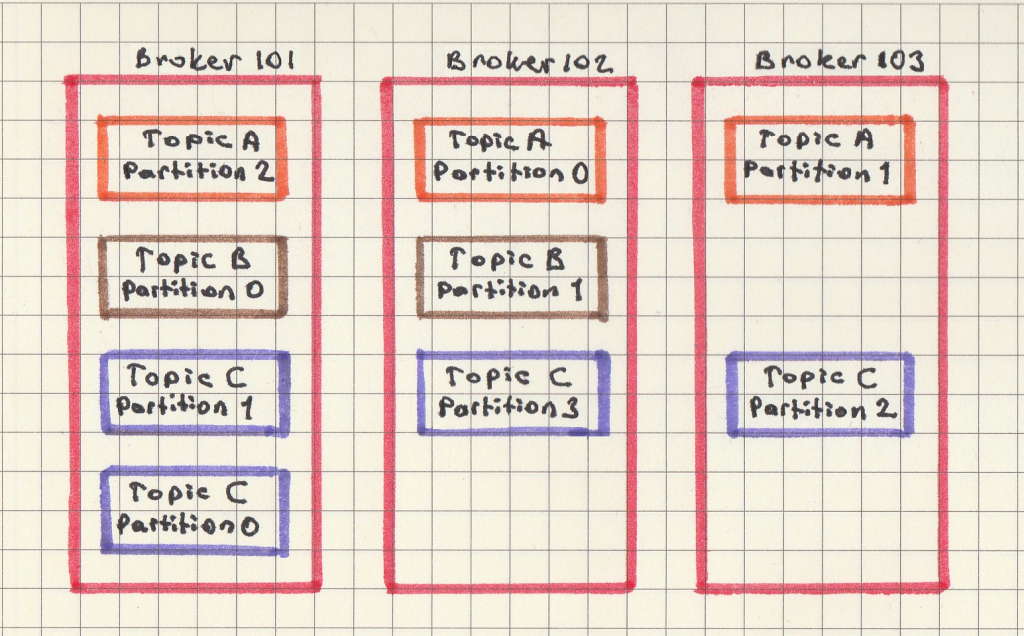 Broker 101
Topic A
Partition 2
Topic B
Partition 0
Topic C
Partition 1
Topic C
Partition 0
Broker 102
Topic A
Partition 0
Topic B
Partition 1
Topic C
Partition 3
Broker 103
Topic A
Partition 1
Topic C
Partition 2